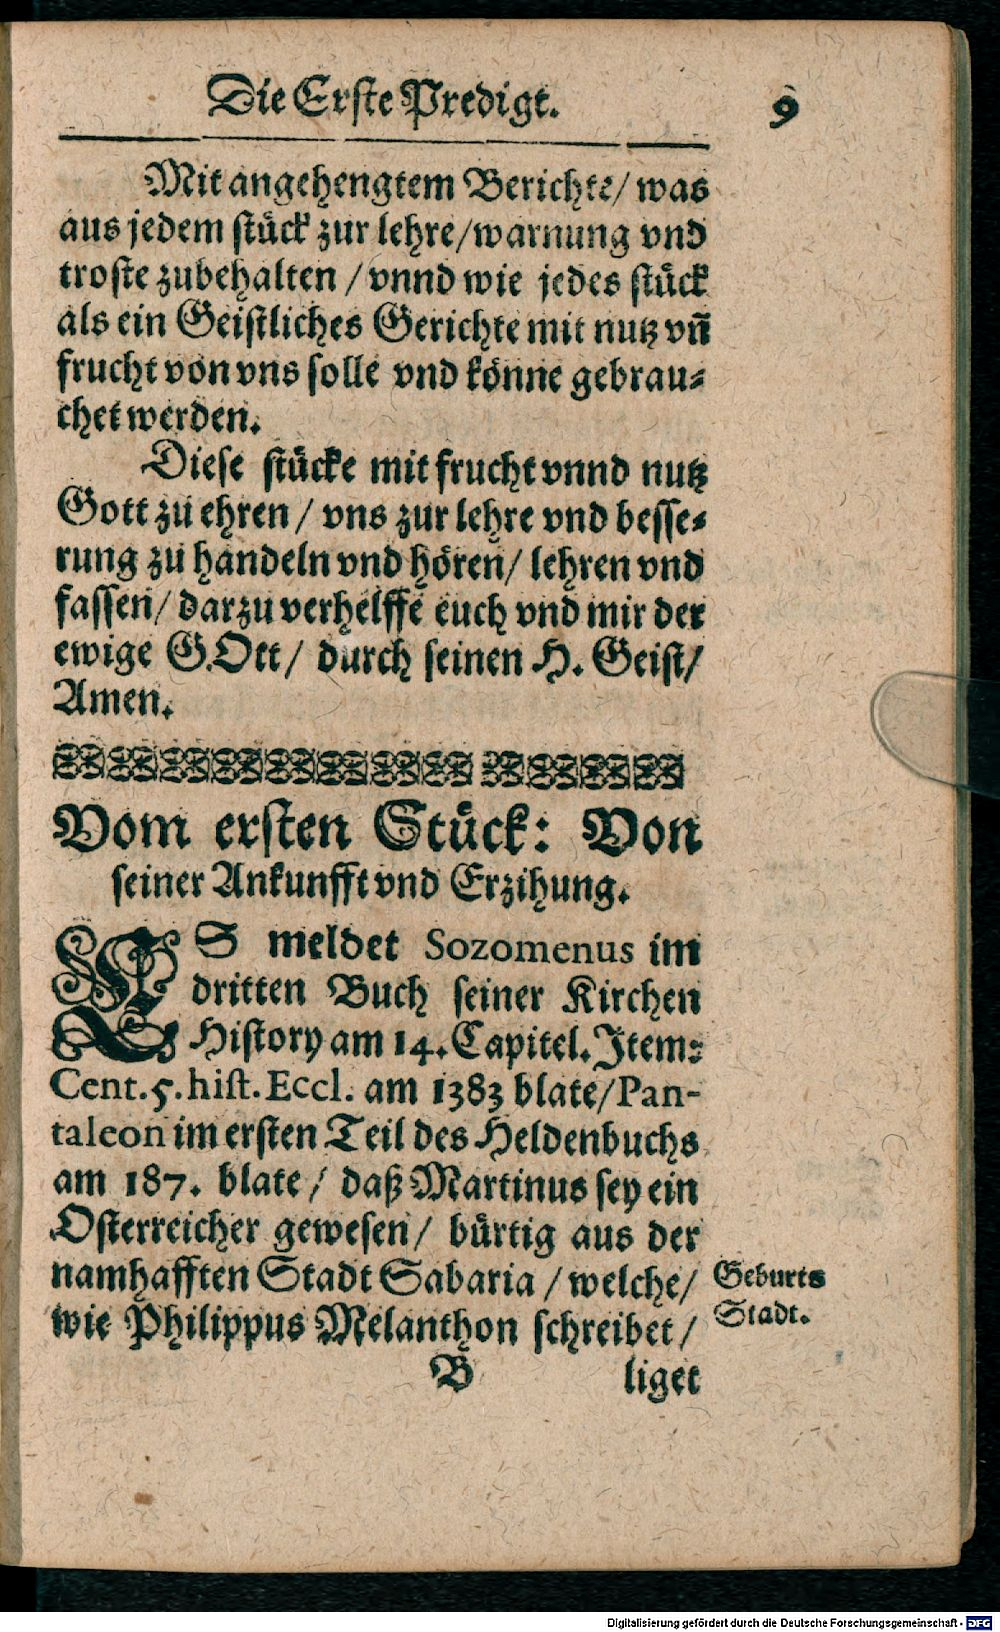 Die Erste Predigt. 9
Mit angehengtem Berichte/ was
aus jedem stück zur lehre/warnung vnd
troste zubehalten / vnnd wie jedes stück
als ein Geistliches Gerichte mit nutz vn̄
frucht von vns solle vnd könne gebrau-
chet werden.
Diese stücke mit frucht vnnd nutz
Gott zu ehren / vns zur lehre vnd besse-
rung zu handeln vnd hören/ lehren vnd
fassen/ darzu verhelffe euch vnd mir der
ewige GOtt/ durch seinen H. Geist/
Amen.
Vom ersten Stück: Von
seiner Ankunfft vnd Erzihung.
ES meldet Sozomenus im
dritten Buch seiner Kirchen
History am 14. Capitel. Item:
Cent. 5. hist. Eccl. am 1383 blate/Pan-
taleon im ersten Teil des Heldenbuchs
am 187. blate / daß Martinus sey ein
Osterreicher gewesen/ bürtig aus der
namhafften Stadt Sabaria / welche/
wie Philippus Melanthon schreibet /
Geburts
Stadt.
B liget
Digitalisierung gefördert durch die Deutsche Forschungsgemeinschaft - DFG